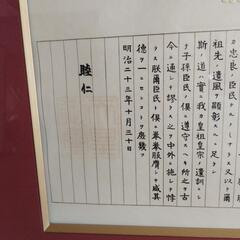 カ忠良ノ臣民タルノミナラス又以テ爾
祖先ノ遺風ヲ顯彰スルニ足ラン
斯ノ道ハ實ニ我カ皇祖皇宗ノ遺訓ニシ
テ子孫臣民ノ俱ニ遵守スヘキ所之ヲ古
今ニ通シテ謬ラス之ヲ中外ニ施シテ悖
ラス朕爾臣民ト俱ニ拳々服膺シテ咸其
德ヲ一ニセンコトヲ庶幾フ
明治二十三年十月三十日
睦仁